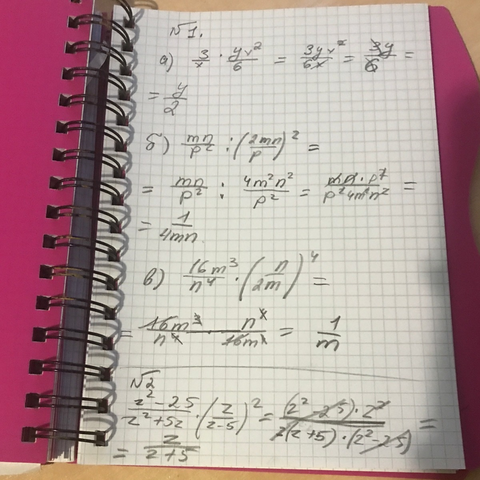 №1.
а) 3/x · yv²/6 = 3yv²/6x = 3y/6 =
= y/2
б) mn/p² : (2mn/p)² =
= mn/p² : 4m²n²/p² = mn · p²/p² 4m²n² =
= 1/4mn
в) 16m³/n⁴ · (n/2m)⁴ =
= 16m³/n⁴ · n⁴/16m⁴ = 1/m
№2
z²-25/z²+5z · (z/z-5)² = (z²-25) · z²/z(z+5) · (z²-25) =
= z/z+5